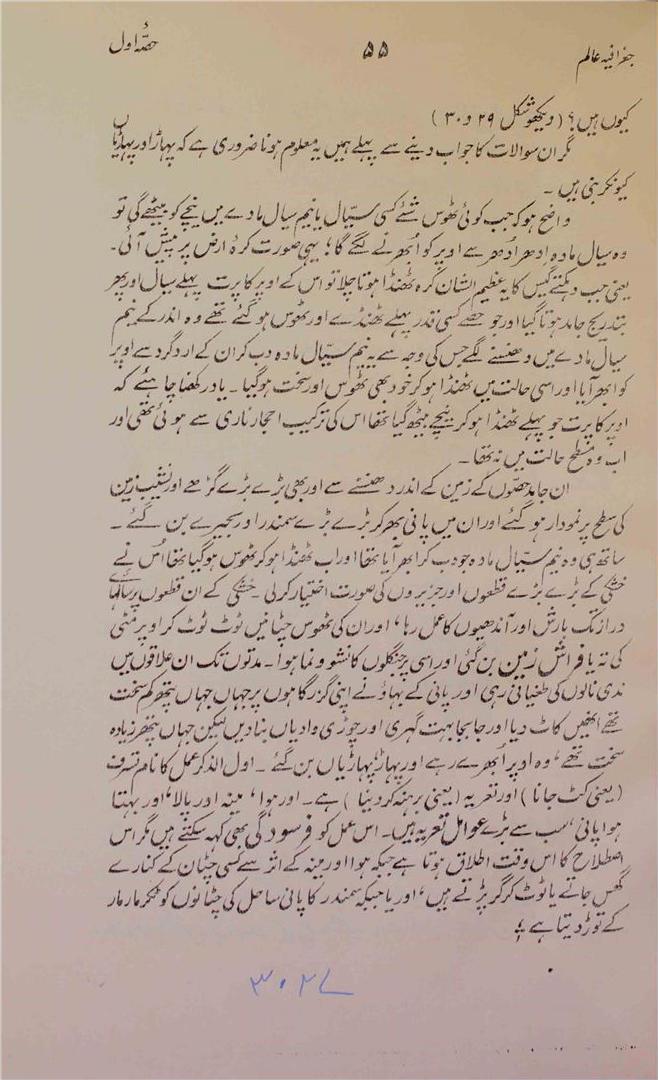 جغرافیہ عالم ۵۵ حصّہ اول
کیوں ہیں؟ (دیکھو شکل ۲۹ و ۳۰)
مگر ان سوالات کا جواب دینے سے پہلے ہمیں یہ معلوم ہونا ضروری ہے کہ پہاڑ اور پہاڑیاں
کیونکر بنی ہیں۔
واضح ہو کہ جب کوئی ٹھوس شئے کسی سیّال یا نیم سیال مادے میں نیچے کو بیٹھے گی تو
وہ سیال مادہ اِدھر اُدھر سے اوپر کو اُبھرنے لگے گا؛ یہی صورت کرۂ ارض پر پیش آئی۔
یعنی جب دہکتے گیس کا یہ عظیم الشان کرہ ٹھنڈا ہوتا چلا تو اس کے اوپر کا پرت پہلے سیال اور پھر
بتدریج جامد ہوتا گیا اور جو حصے کسی قدر پہلے ٹھنڈے اور ٹھوس ہو گئے تھے وہ اندر کے نیم
سیال مادے میں دھنسنے لگے جس کی وجہ سے یہ نیم سیّال مادہ دب کر ان کے اردگرد سے اوپر
کو ابھر آیا اور اسی حالت میں ٹھنڈا ہو کر خود بھی ٹھوس اور سخت ہو گیا۔ یاد رکھنا چاہئے کہ
اوپر کا پرت جو پہلے ٹھنڈا ہو کر نیچے بیٹھ گیا تھا اس کی ترکیب احجار ناری سے ہوئی تھی اور
اب وہ مسطح حالت میں نہ تھا۔
ان جامد حصّوں کے زمین کے اندر دھنسنے سے اور بھی بڑے بڑے گڑھے اور نشیب زمین
کی سطح پر نمودار ہو گئے اور ان میں پانی بھر کر بڑے بڑے سمندر اور بحیرے بن گئے۔
ساتھ ہی وہ نیم سیّال مادہ جو دب کر ابھر آیا تھا اور اب ٹھنڈا ہو کر ٹھوس ہو گیا تھا اُس نے
خشکی کے بڑے بڑے قطعوں اور جزیروں کی صورت اختیار کر لی۔ خشکی کے ان قطعوں پر سالہائے
دراز تک بارش اور آندھیوں کا عمل رہا، اور ان کی ٹھوس چٹانیں ٹوٹ ٹوٹ کر اوپر مٹی
کی تہ یا فراش زمین بن گئی اور اسی پر جنگلوں کا نشو و نما ہوا۔ مدتوں تک ان علاقوں میں
ندی نالوں کی طغیانی رہی اور پانی کے بہاؤ نے اپنی گزرگاہوں پر جہاں جہاں پتھر کم سخت
تھے انھیں کاٹ دیا اور جابجا بہت گہری اور چوڑی وادیاں بنا دیں لیکن جہاں پتھر زیادہ
سخت تھے، وہ اوپر اُبھرے رہے اور پہاڑ پہاڑیاں بن گئے۔ اول الذکر عمل کا نام تسرف
(یعنی کٹ جانا) اور تعریہ (یعنی برہنہ کر دینا) ہے۔ اور ہوا، مینہ اور پالا، اور بہتا
ہوا پانی، سب سے بڑے عوامل تعریہ ہیں۔ اس عمل کو فرسودگی بھی کہہ سکتے ہیں مگر اس
اصطلاح کا اس وقت اطلاق ہوتا ہے جبکہ ہوا اور مینہ کے اثر سے کسی چٹان کے کنارے
گھس جاتے یا ٹوٹ کر گر پڑتے ہیں، اور یا جبکہ سمندر کا پانی ساحل کی چٹانوں کو ٹکر مار مار
کے توڑ دیتا ہے؛